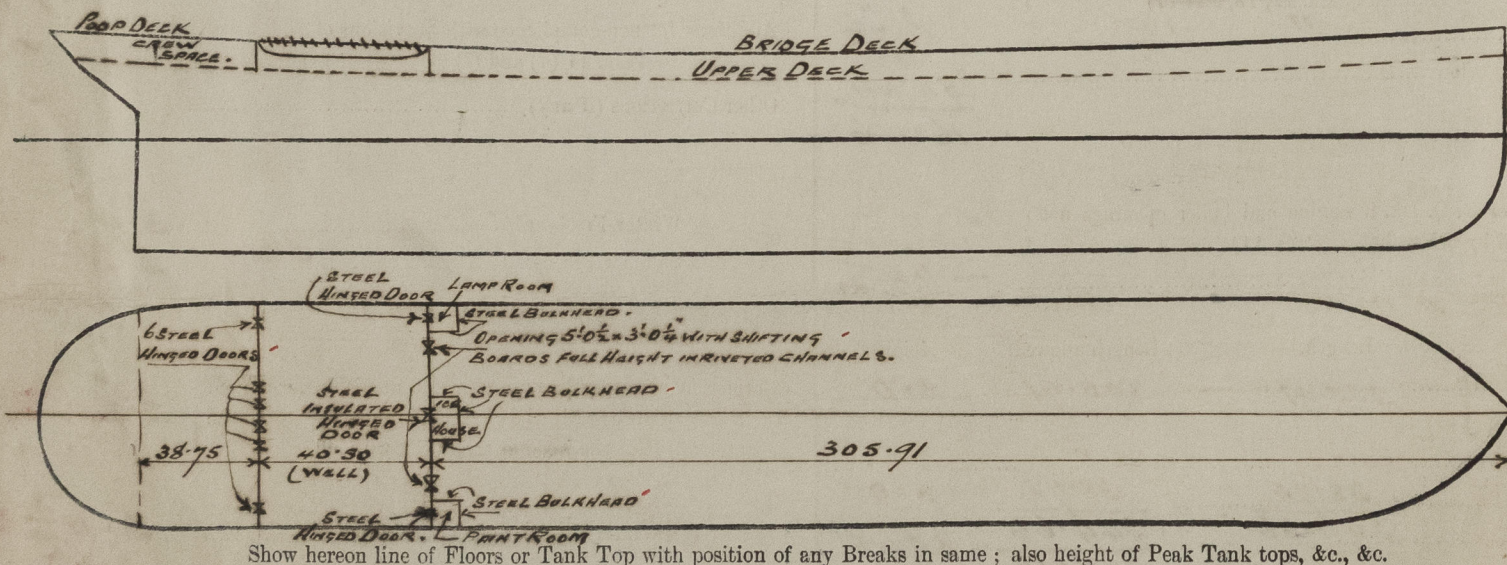 POOP DECK
CREW
SPACE.
BRIDGE DECK
UPPER DECK
STEEL
HINGED DOOR
LAMP ROOM
STEEL BULKHEAD.
OPENING 5'0½" x 3'0¼" WITH SHIFTING
BOARDS FULL HEIGHT IN RIVETED CHANNELS.
6 STEEL
HINGED DOORS
STEEL
INSULATED
HINGED
DOOR
STEEL BULKHEAD
ICE
HOUSE
38.75
40.50
(WELL)
305.91
STEEL BULKHEAD
STEEL
HINGED DOOR.
PAINT ROOM
Show hereon line of Floors or Tank Top with position of any Breaks in same ; also height of Peak Tank tops, &c., &c.